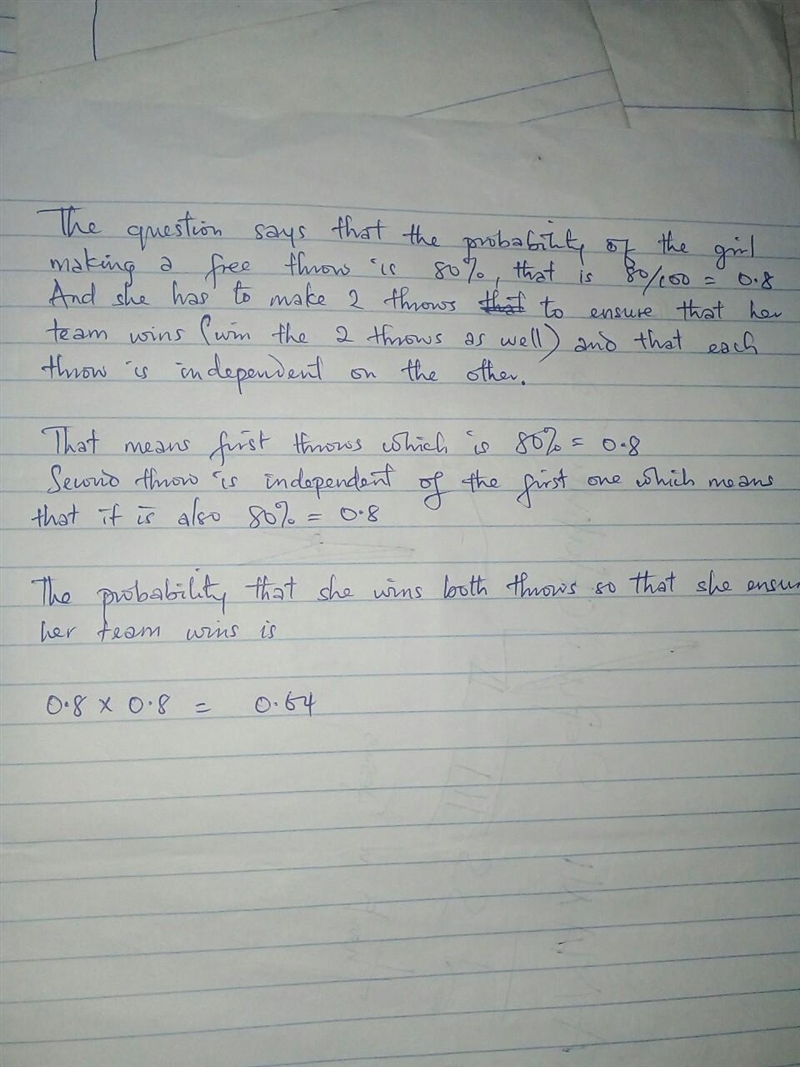 The question says that the probability of the girl
making a free throw is 80%, that is 80/100 = 0.8
And she has to make 2 throws that to ensure that her
team wins (win the 2 throws as well) and that each
throw is independent on the other.
That means first throws which is 80% = 0.8
Second throw is independent of the first one which means
that it is also 80% = 0.8
The probability that she wins both throws so that she ensu
her team wins is
0.8 x 0.8 = 0.64